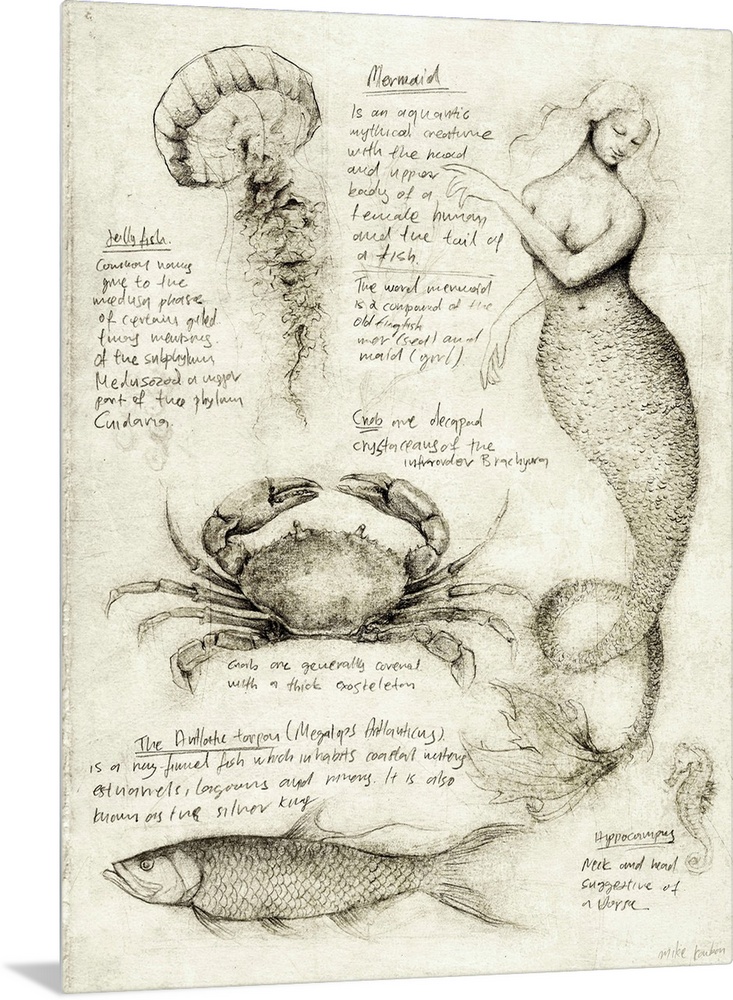 Mermaid
Is an aquantic
mythical creature
with the head
and upper
body of a
female human
and the tail of
a fish.
The word mermaid
is a compound of the
old English
mer (sea) and
maid (girl)
Jelly fish.
Common name
give to the
medusa phase
of certain
of the subphylum
Medusozoa a major
part of the phylum
Cnidaria
Crab are decapod
crystaceans of the
infraorder Brachyura
Crab are generally covered
with a thick exoskeleton
The Atlantic tarpon (Megalops Atlanticus).
is a ray-finned fish which inhabits coastal waters
estuaries, lagoons and rivers. It is also
known as the silver king
Hippocampus
Neck and head
suggestive of
a horse
mike